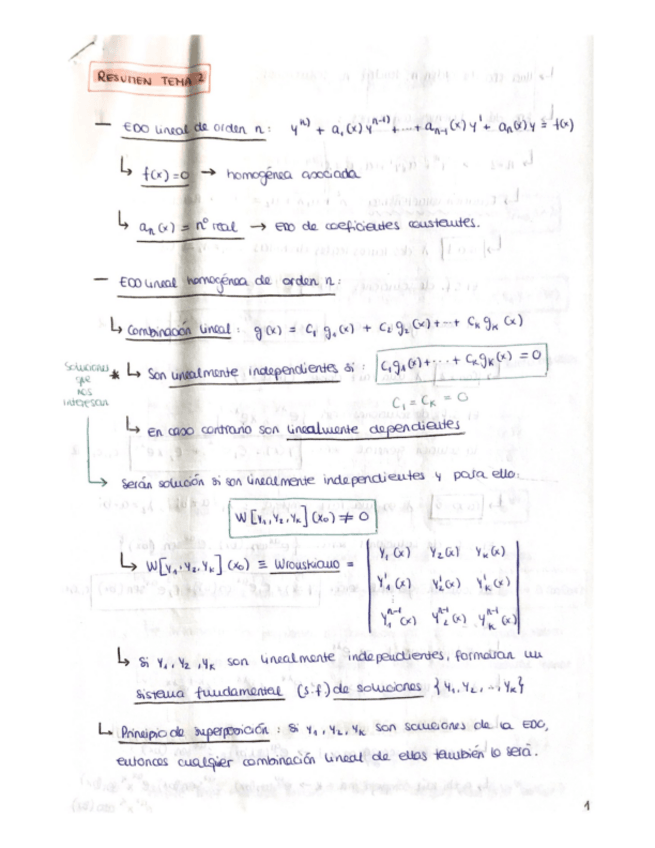 RESUMEN TEMA 2
— EDO lineal de orden n: y^(n) + a₁(x) y^(n-1) + ... + aₙ₋₁(x) y' + aₙ(x) y = f(x)
↳ f(x) = 0 → homogénea asociada
↳ aₙ(x) = nº real → EDO de coeficientes constantes.
— EDO lineal homogénea de orden n:
↳ Combinación lineal: g(x) = C₁ g₁(x) + C₂ g₂(x) + ... + Cₖ gₖ(x)
Soluciones que nos interesan
* ↳ Son linealmente independientes si: C₁g₁(x) + ... + Cₖgₖ(x) = 0
C₁ = Cₖ = 0
↳ En caso contrario son linealmente dependientes
→ Serán solución si son linealmente independientes y para ello:
W[y₁, y₂, yₖ](x₀) ≠ 0
↳ W[y₁, y₂, yₖ](x₀) ≡ Wronskiano =
y₁(x) y₂(x) yₖ(x)
y'₁(x) y'₂(x) y'ₖ(x)
y₁ⁿ⁻¹(x) y₂ⁿ⁻¹(x) yₖⁿ⁻¹(x)
↳ Si y₁, y₂, yₖ son linealmente independientes, formarán un
sistema fundamental (s.f) de soluciones {y₁, y₂, ..., yₖ}
↳ Principio de superposición: Si y₁, y₂, yₖ son soluciones de la EDO,
entonces cualquier combinación lineal de ellas también lo será.
1